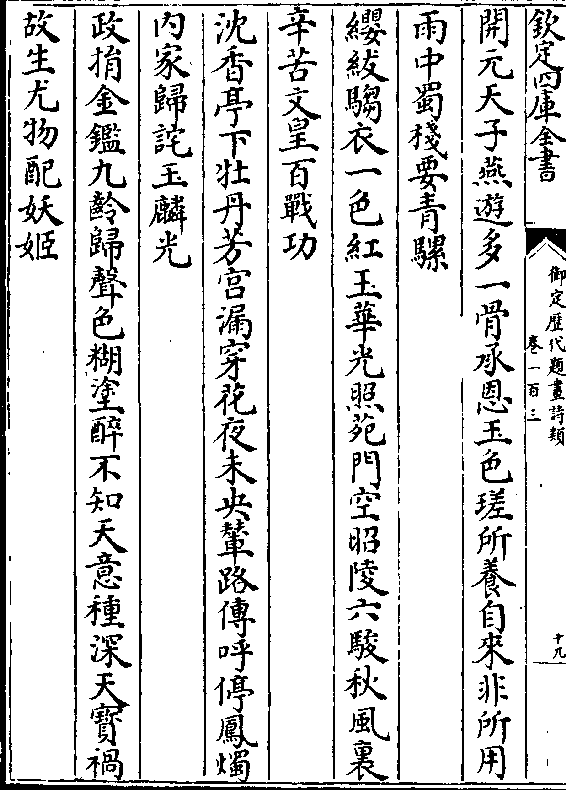 欽定四庫全書
御定歷代題畫詩類
卷一百三
十九
開元天子燕遊多一骨承恩玉色瑳所養自來非所用
雨中蜀棧要青騾
纓紱騶衣一色紅玉華光照苑門空昭陵六駿秋風裏
辛苦文皇百戰功
沈香亭下牡丹芳宮漏穿花夜未央輦路傳呼停鳳燭
内家歸詫玉麟光
政捐金鑑九齡歸聲色糊塗醉不知天意種深天寳禍
故生尤物配妖姬